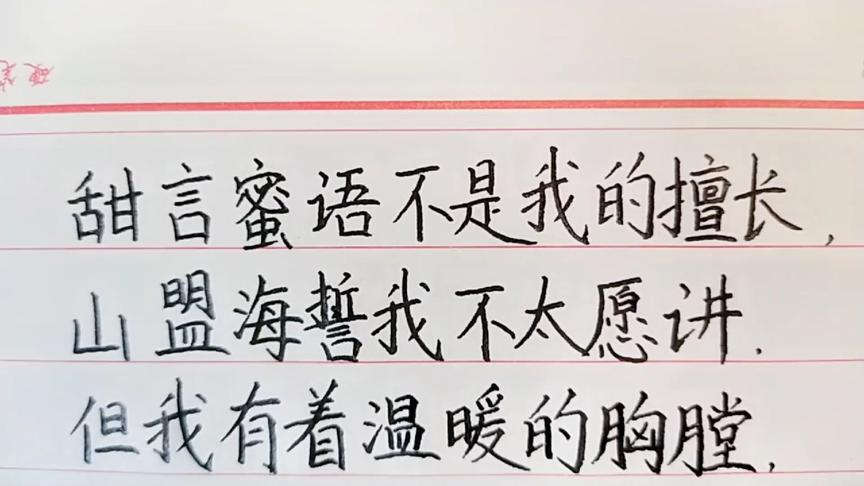 甜言蜜语不是我的擅长,
山盟海誓我不太愿讲.
但我有着温暖的胸膛,